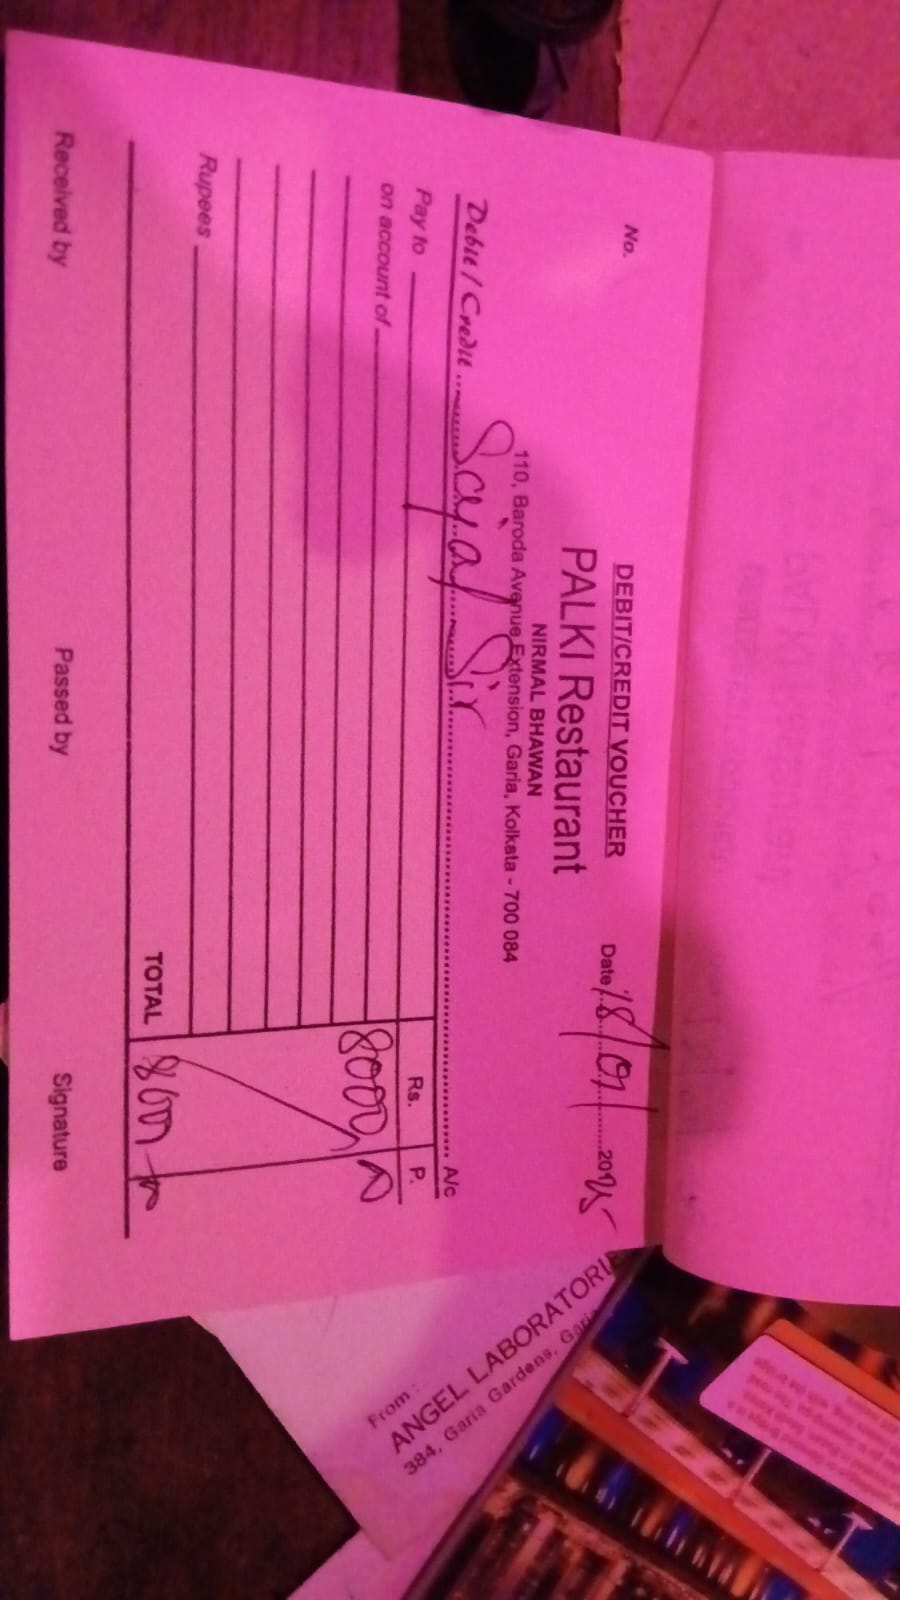 DEBIT/CREDIT VOUCHER
No.
Date 18/01/2025
PALKI Restaurant
NIRMAL BHAWAN
110, Baroda Avenue Extension, Garia, Kolkata - 700 084
Debit / Credit Sayal Sir A/c
Pay to
Rs. P.
on account of
8000
Rupees
TOTAL 8000
Received by Passed by Signature
From :
ANGEL LABORATORIE
384, Garia Gardens, Gari